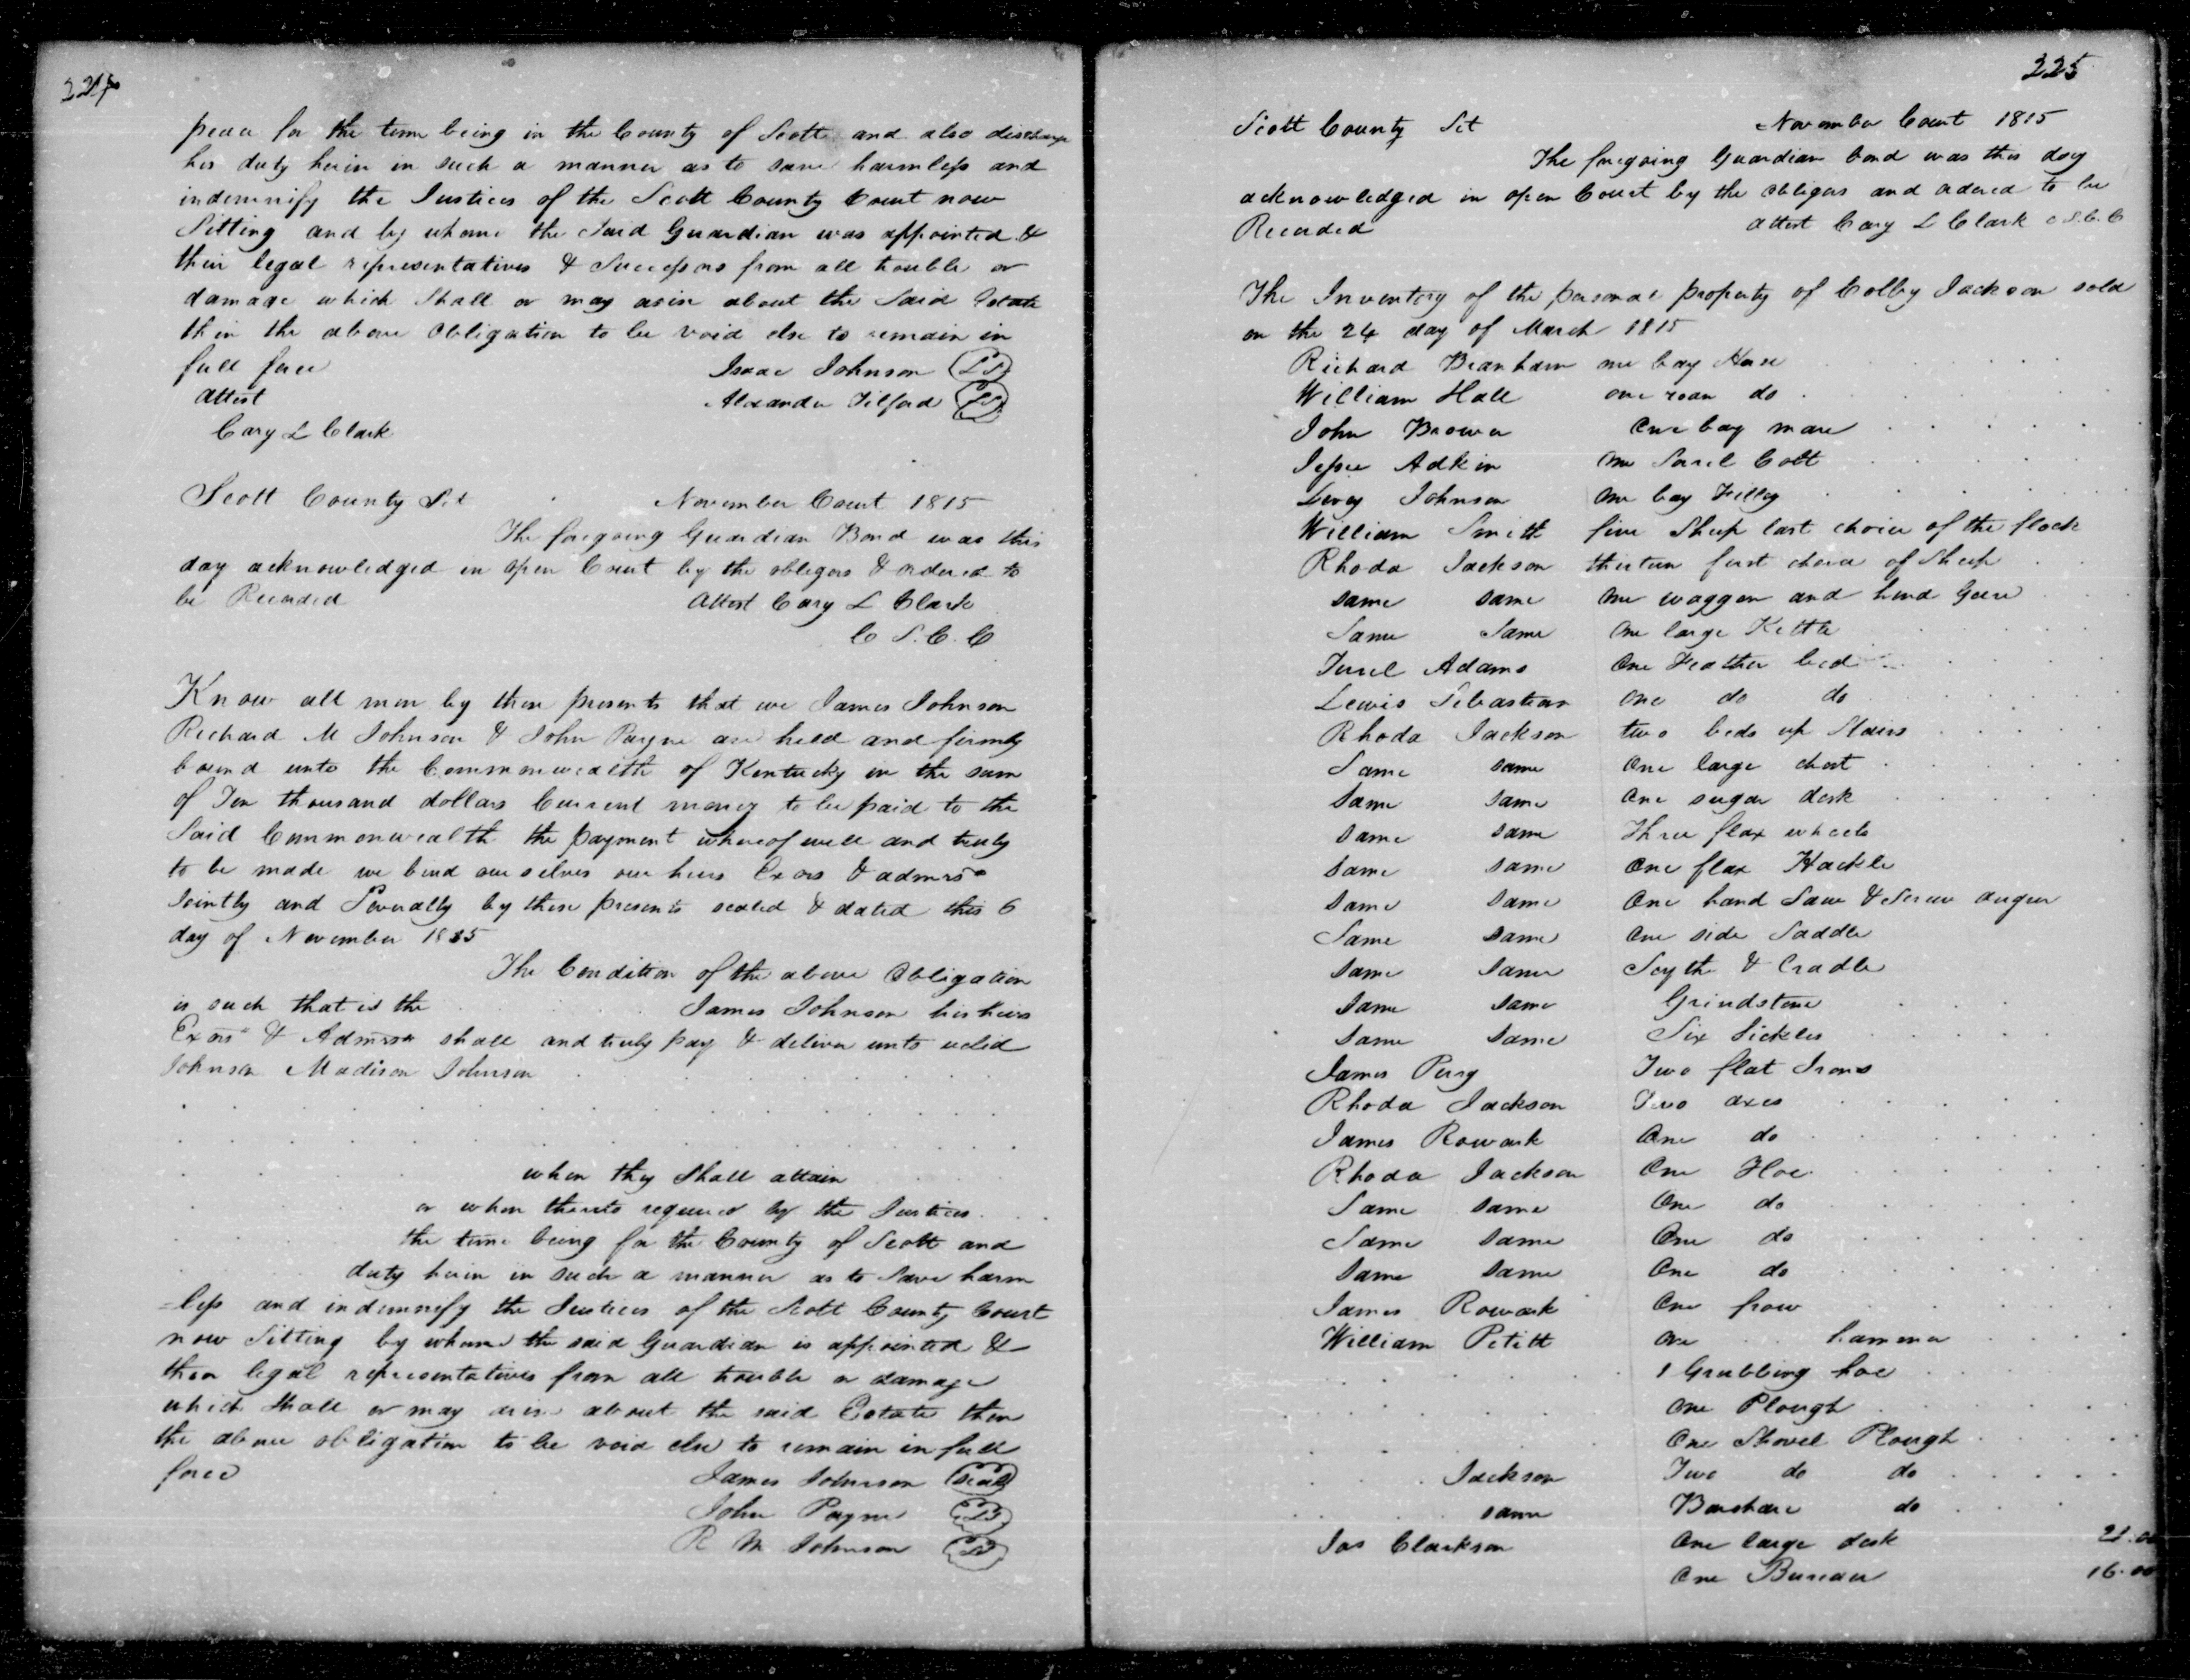 224
peace for the time being in the County of Scott and also discharge
his duty herin in such a manner as to save harmless and
indemnify the Justices of the Scott County Court now
Sitting and by whome the Said Guardian was appointed &
their legal representatives & Successors from all trouble or
damage which Shall or may arise about the Said Estate
then the above Obligation to be void else to remain in
full force
Isaac Johnson (LS)
Attest
Alexander Tilford (LS)
Cary L Clark
Scott County Sct
November Court 1815
The foregoing Guardian Bond was this
day acknowledged in open Court by the obligors & ordered to
be Recorded
Attest Cary L Clark
C S. C. C
Know all men by these presents that we James Johnson
Richard M Johnson & John Payne are held and firmly
bound unto the Commonwealth of Kentucky in the sum
of Ten thousand dollars Current money to be paid to the
Said Commonwealth the payment whereof well and truly
to be made we bind ourselves our heirs Exors & admrs
Jointly and Severally by these presents sealed & dated this 6
day of November 1815
The Condition of the above Obligation
is such that is the
James Johnson his heirs
Exors & Admrs shall and truly pay & deliver unto
Johnson Madison Johnson
when they Shall attain
or when thereto required by the Justices
the time being for the County of Scott and
duty herin in such a manner as to Save harm
=less and indemnify the Justices of the Scott County Court
now Sitting by whome the said Guardian is appointed &
their legal representatives from all trouble or damage
which Shall or may arise about the said Estate then
the above obligation to be void else to remain in full
force
James Johnson (Seal)
John Payne (LS)
R M Johnson (LS)
225
Scott County Sct
November Court 1815
The foregoing Guardian bond was this day
acknowledged in open Court by the obligors and ordered to be
Recorded
attest Cary L Clark C S. C. C
The Inventory of the personal property of Colby Jackson sold
on the 24 day of March 1815
Richard Branham one bay Horse
William Hall one roan do
John Brown One bay mare
Jessee Adkin One Sorrel Colt
Livey Johnson One bay Filley
William Smith five Sheep last choice of the flock
Rhoda Jackson thirteen first choice of Sheep
same same One waggon and hind Geere
Same Same One large Kettle
Adams One Feather bed
Lewis Sebastian One do do
Rhoda Jackson two beds up Stairs
Same same One large chest
Same Same One sugar desk
Same same Three flax wheels
same same One flax Hackle
same same One hand Saw & Screw augur
Same same One side Saddle
same same Scythe & Cradle
same same Grindstone
same same Six Sickles
James Perry Two flat Irons
Rhoda Jackson Two axes
James Rowark One do
Rhoda Jackson One Hoe
Same same One do
Same same One do
same same One do
James Rowark One frow
William Petitt One hammer
1 Grubbing hoe
One Plough
One Shovel Plough
Jackson Two do do
same Barshare do
Jas Clarkson One large desk 21.00
One Bureau 16.00